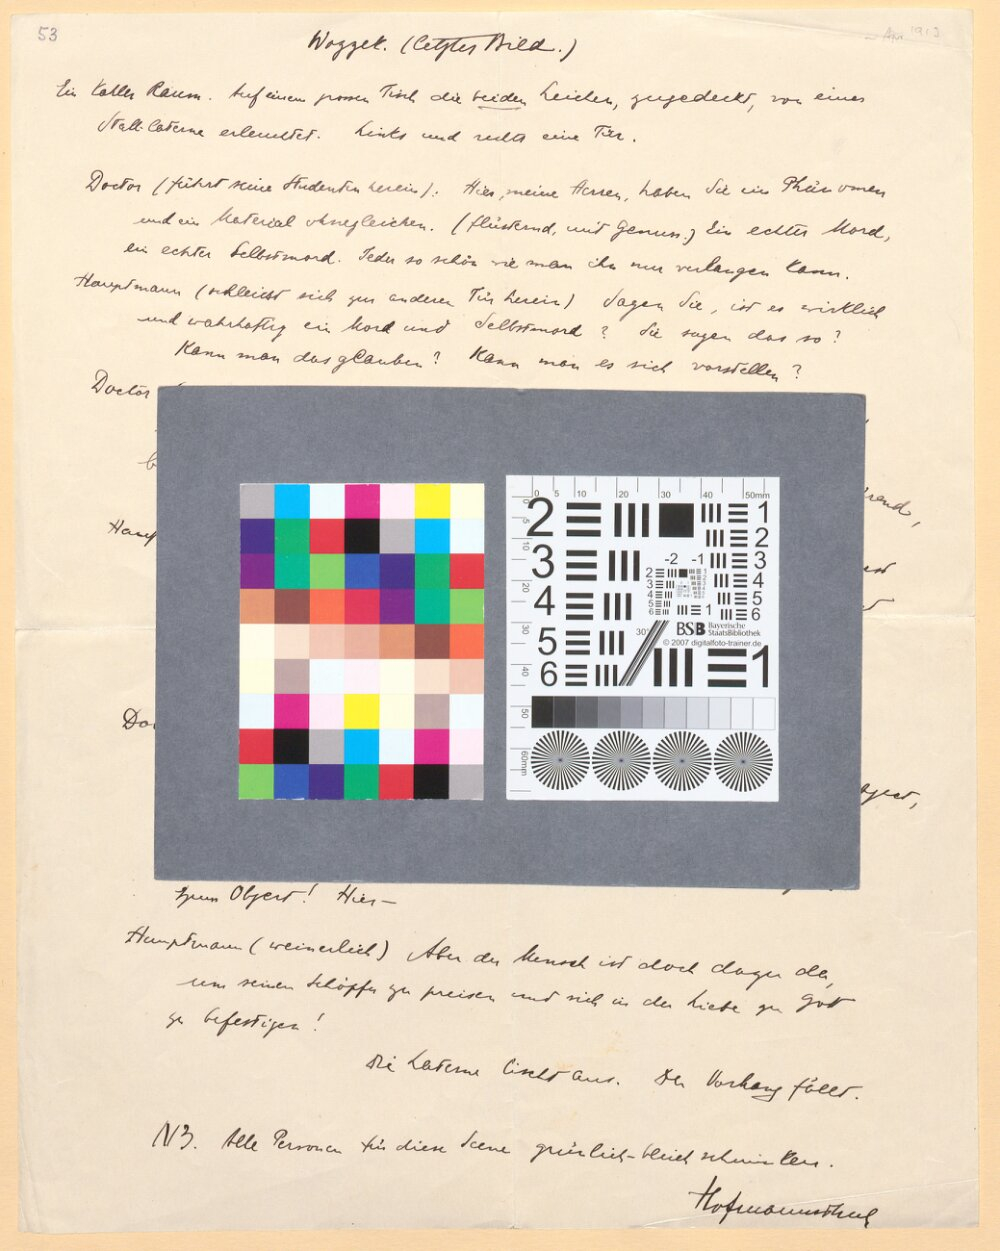 53
Apr 1913
Wozzek. (letztes Bild.)
Ein kahler Raum. Auf einem grossen Tisch die beiden Leichen, zugedeckt, von einer
Stall-Laterne erleuchtet. Links und rechts eine Tür.
Doctor (führt seine Studenten herein): Hier, meine Herren, haben Sie ein Phänomen
und ein Material ohnegleichen. (flüsternd, mit Genuss.) Ein echter Mord,
ein echter Selbstmord. Jeder so schön wie man ihn nur verlangen kann.
Hauptmann (schleicht sich zur anderen Tür herein) Sagen Sie, ist es wirklich
und wahrhaftig ein Mord und Selbstmord? Sie sagen das so?
Kann man das glauben? Kann man es sich vorstellen?
Doctor
Haup
Do
zum Object! Hier—
Hauptmann (weinerlich) Aber der Mensch ist doch dazu da,
um seinen Schöpfer zu preisen und sich in der Liebe zu Gott
zu befestigen!
Die Laterne lischt aus. Der Vorhang fällt.
NB. Alle Personen für diese Scene grünlich-bleich schminken.
Hofmannsthal
0 5 10 20 30 40 50mm
2 1
2
3 3
4 4
5 5
6 6
-2 -1
30°
1
BSB Bayerische
StaatsBibliothek
© 2007 digitalfoto-trainer.de
1
0 5 10 20 30 40 50 60mm